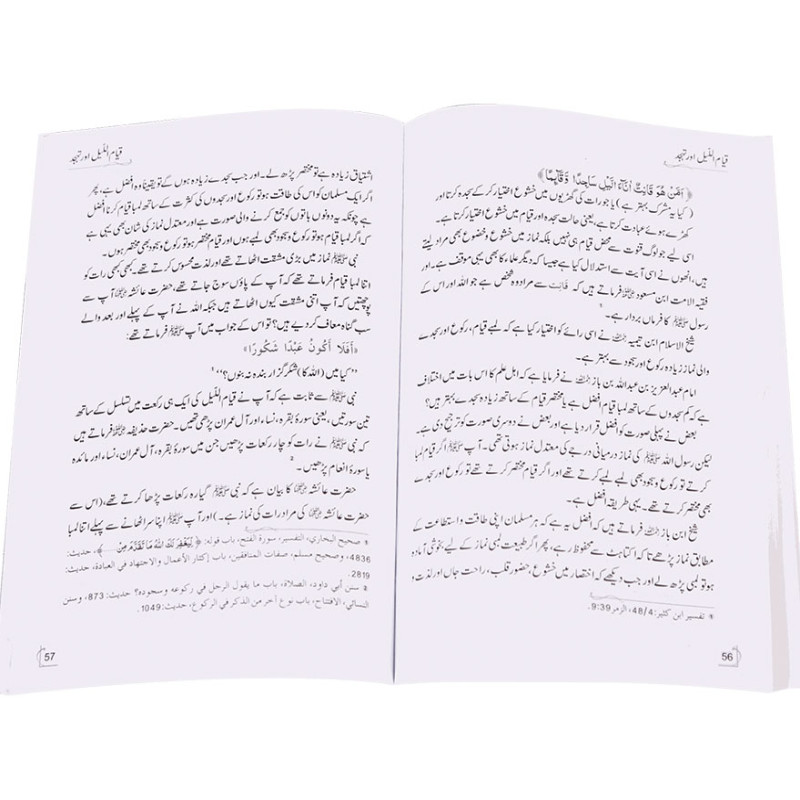 قیام اللیل اور تہجد
﴿ اَمَّنْ هُوَ قَانِتٌ اٰنَآءَ الَّيْلِ سَاجِدًا وَّقَآئِمًا ﴾
( کیا یہ مشرک بہتر ہے ) یا جو رات کی گھڑیوں میں خشوع اختیار کر کے سجدہ کرتا اور
کھڑے ہوئے عبادت کرتا ہے، یعنی حالت سجدہ اور قیام میں خشوع اختیار کرتا ہے۔
اسی لیے جو لوگ قنوت سے محض قیام ہی نہیں بلکہ نماز میں خشوع و خضوع بھی مراد لیتے
ہیں، انھوں نے اسی آیت سے استدلال کیا ہے جیسا کہ دیگر علماء کا بھی یہی موقف ہے۔ اور
فقیہ الامت ابن مسعود رضی اللہ عنہ فرماتے ہیں کہ قَانِت سے مراد وہ شخص ہے جو اللہ اور اس کے
رسول ﷺ کا فرماں بردار ہے۔
شیخ الاسلام ابن تیمیہ رحمہ اللہ نے اسی رائے کو اختیار کیا ہے کہ لمبے قیام، رکوع اور سجدے
والی نماز زیادہ رکوع اور سجود سے بہتر ہے۔
امام عبدالعزیز بن عبداللہ بن باز رحمہ اللہ نے فرمایا ہے کہ اہل علم کا اس بات میں اختلاف
ہے کہ کم سجدوں کے ساتھ لمبا قیام افضل ہے یا مختصر قیام کے ساتھ زیادہ سجدے بہتر ہیں؟
بعض نے پہلی صورت کو افضل قرار دیا ہے اور بعض نے دوسری صورت کو ترجیح دی ہے۔
لیکن رسول اللہ ﷺ کی نماز درمیانی درجے کی معتدل نماز ہوتی تھی۔ آپ ﷺ اگر قیام لمبا
کرتے تو رکوع و سجود بھی لمبے لمبے کرتے تھے اور اگر قیام مختصر کرتے تھے تو رکوع اور سجدے
بھی مختصر کرتے تھے۔ یہی طریقہ افضل ہے۔
شیخ ابن باز رحمہ اللہ فرماتے ہیں کہ افضل یہ ہے کہ ہر مسلمان اپنی طاقت و استطاعت کے
مطابق نماز پڑھے تاکہ اکتاہٹ سے محفوظ رہے، پھر اگر طبیعت لمبی نماز کے لیے بخوشی آمادہ
ہو تو لمبی پڑھ لے اور جب دیکھے کہ اختصار میں خشوع، حضور قلب، راحت جاں اور لذت و
① تفسیر ابن کثیر: 48/4، الزمر 9:39.
56
قیام اللیل اور تہجد
اشتیاق زیادہ ہے تو مختصر پڑھ لے۔ اور جب سجدے زیادہ ہوں گے تو یقیناً وہ افضل ہے، پھر
اگر ایک مسلمان کو اس کی طاقت ہو تو رکوع اور سجدوں کی کثرت کے ساتھ لمبا قیام کرنا افضل
ہے چونکہ یہ دونوں باتوں کو جمع کرنے والی صورت ہے اور معتدل نماز کی شان بھی یہی ہے
کہ اگر لمبا قیام ہو تو رکوع و سجود بھی لمبے ہوں اور قیام مختصر ہو تو رکوع و سجود بھی مختصر ہوں۔
نبی ﷺ نماز میں بڑی مشقت اٹھاتے تھے اور لذت محسوس کرتے تھے۔ کبھی کبھی رات کو
اتنا لمبا قیام فرماتے تھے کہ آپ کے پاؤں سوج جاتے تھے، حضرت عائشہ رضی اللہ عنہا آپ سے
پوچھتیں کہ آپ اتنی مشقت کیوں اٹھاتے ہیں حالانکہ اللہ نے آپ کے پہلے اور بعد والے
سب گناہ معاف کر دیے ہیں؟ تو اس کے جواب میں آپ ﷺ فرماتے تھے:
«أَفَلَا أَكُونُ عَبْدًا شَكُورًا»
”کیا میں (اللہ کا) شکر گزار بندہ نہ بنوں؟“ ①
نبی ﷺ سے ثابت ہے کہ آپ نے قیام اللیل کی ایک ہی رکعت میں تسلسل کے ساتھ
تین سورتیں، یعنی سورۂ بقرہ، نساء اور آل عمران پڑھی تھیں۔ حضرت حذیفہ رضی اللہ عنہ فرماتے ہیں
کہ نبی ﷺ نے رات کو چار رکعات پڑھیں جن میں سورۂ بقرہ، آل عمران، نساء اور مائدہ
یا سورۂ انعام پڑھیں۔ ②
حضرت عائشہ رضی اللہ عنہا کا بیان ہے کہ نبی ﷺ گیارہ رکعات پڑھا کرتے تھے، (اس سے
حضرت عائشہ رضی اللہ عنہا کی مراد رات کی نماز ہے۔) اور آپ ﷺ اپنا سر اٹھانے سے پہلے اتنا لمبا
① صحيح البخاري، التفسير، سورة الفتح، باب قوله: ﴿ لِيَغْفِرَ لَكَ اللّٰهُ مَا تَقَدَّمَ مِنْ ﴾، حديث:
4836، وصحيح مسلم، صفات المنافقين، باب إكثار الأعمال والاجتهاد في العبادة، حديث:
2819.
② سنن أبي داود، الصلاة، باب ما يقول الرجل في ركوعه وسجوده؟ حديث: 873، وسنن
النسائي، الافتتاح، باب نوع آخر من الذكر في الركوع، حديث: 1049.
57